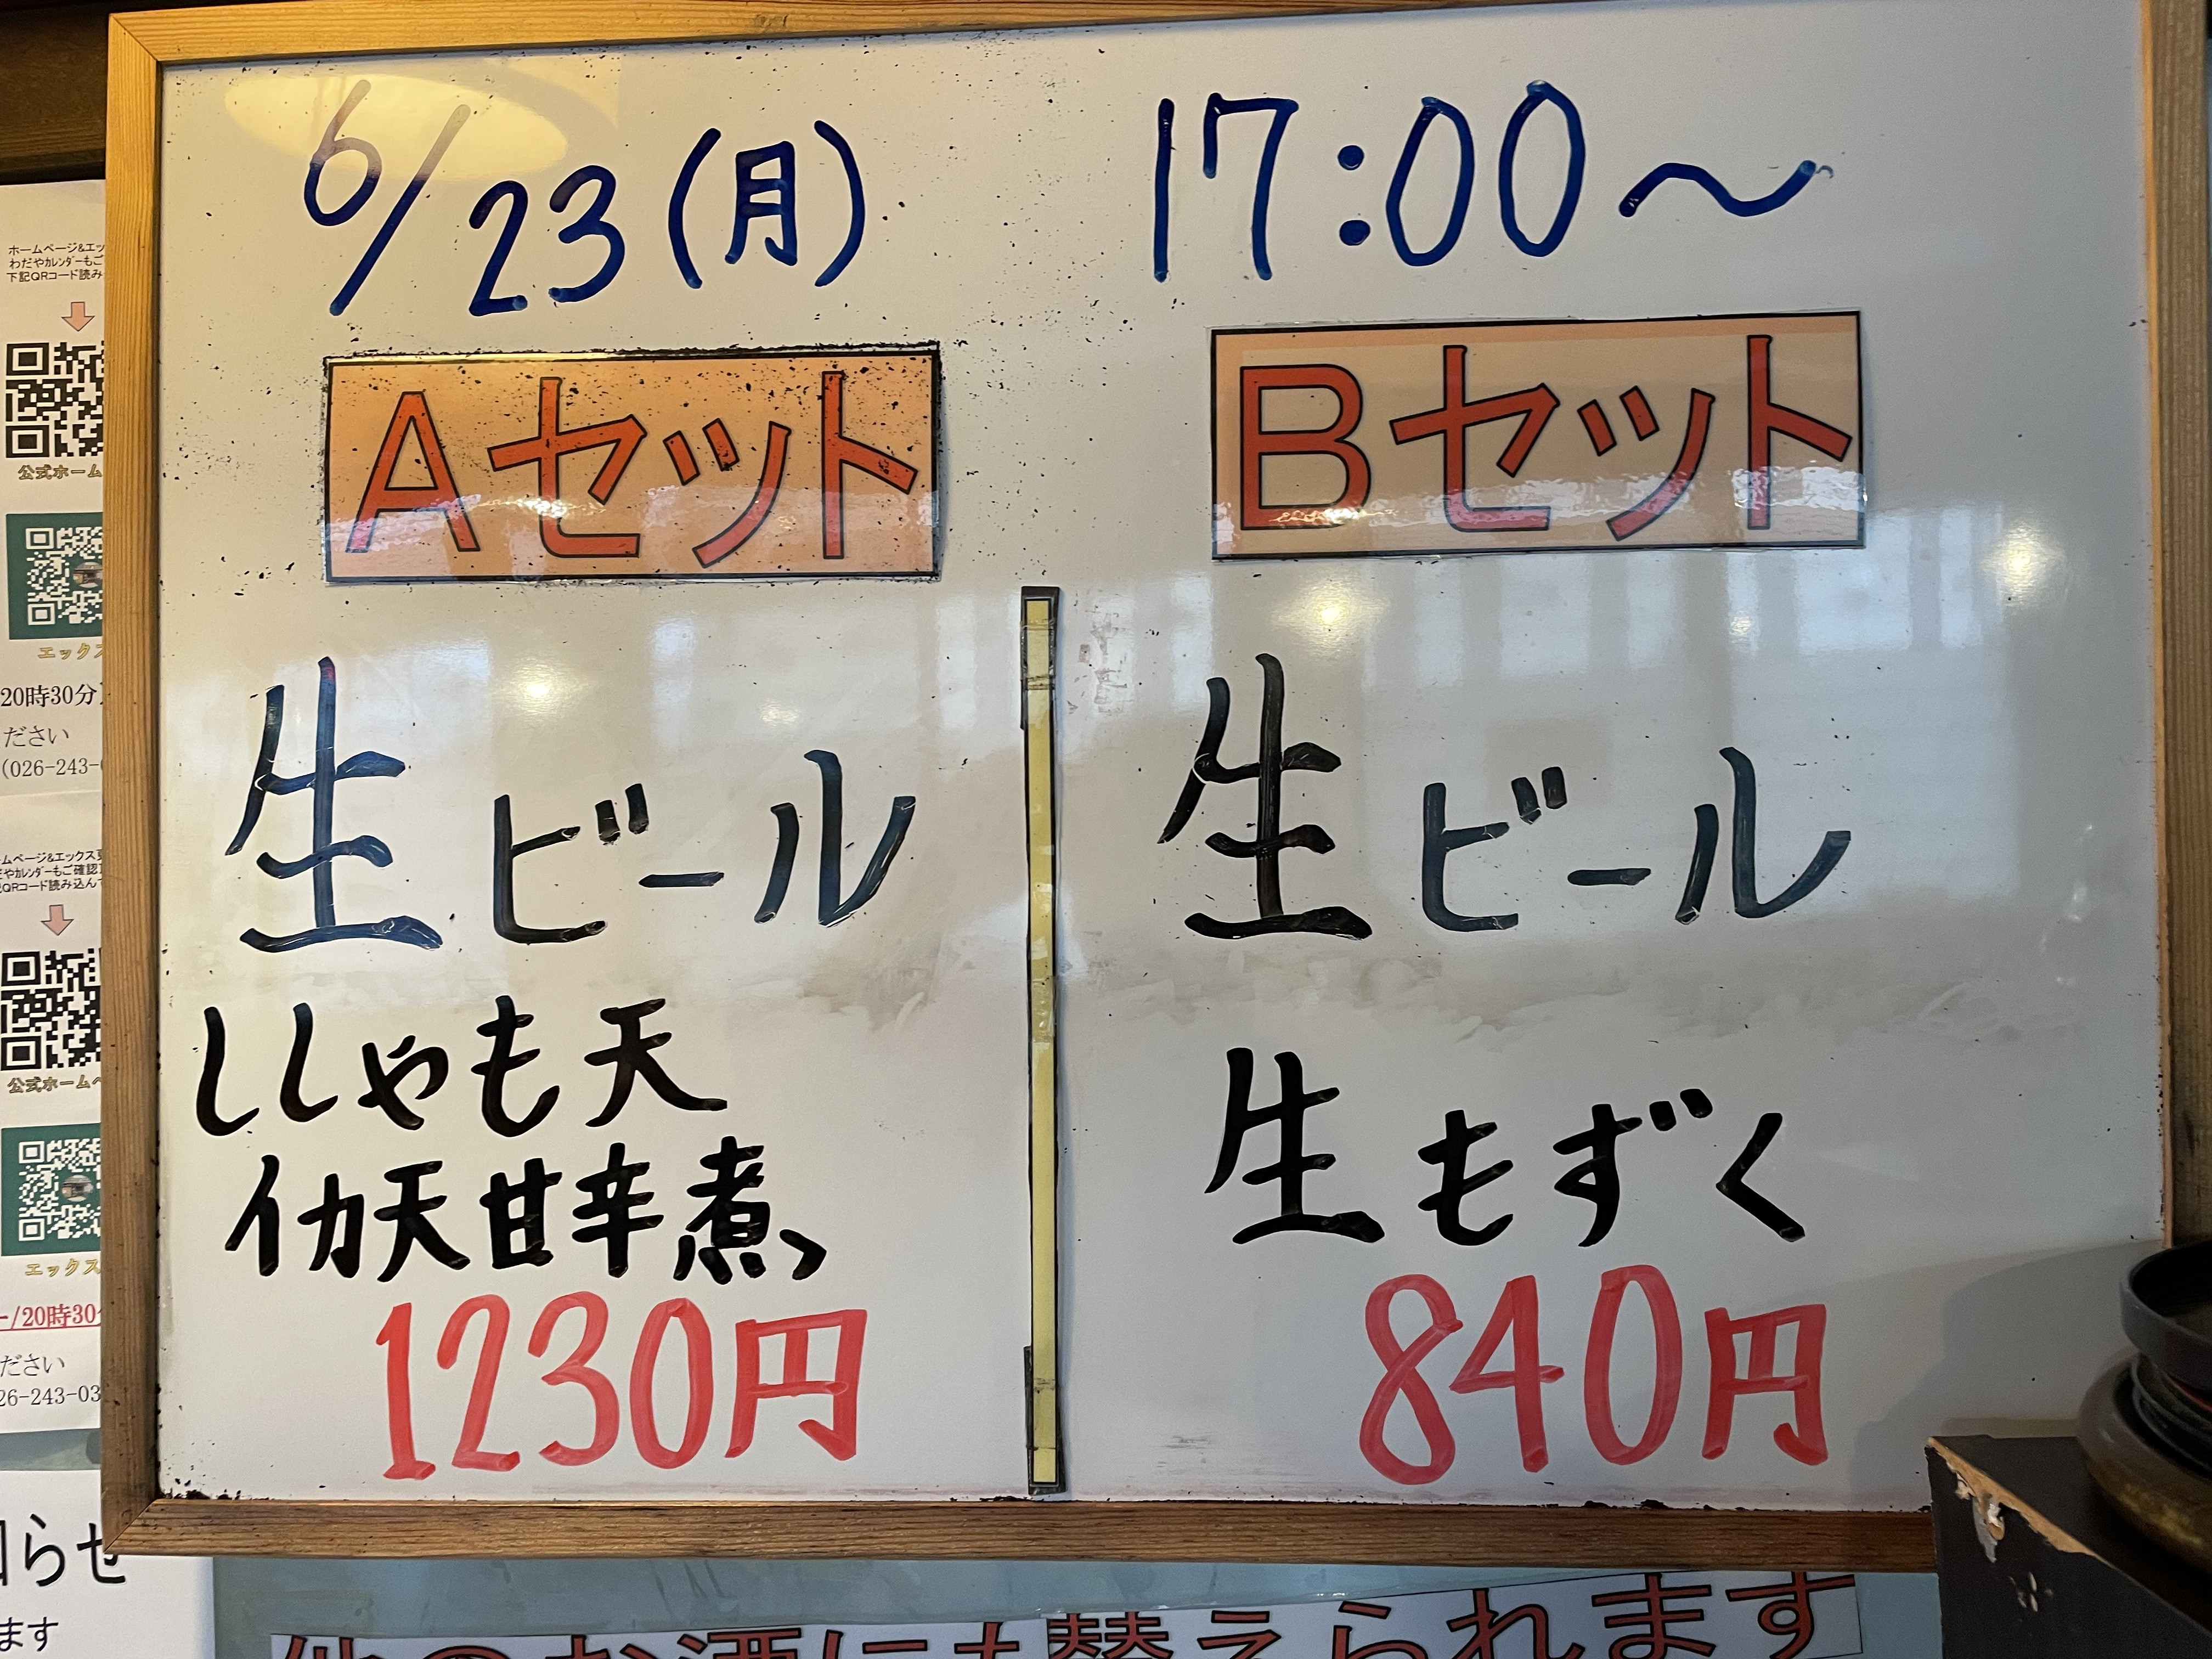 6/23(月) 17:00〜
Aセット
Bセット
生ビール
ししゃも天
イカ天甘辛煮、
1230円
生ビール
生もずく
840円
他のお酒にも替えられます
ホームページ&エッ
わだやカレンダーもご
下記QRコード読み
公式ホーム
エックス
20時30分
ださい
(026-243-
ムページ&エックス更
だやカレンダーもご確認
QRコード読み込んで
公式ホームペ
エックス
/20時30
ださい
26-243-03
らせ
ます